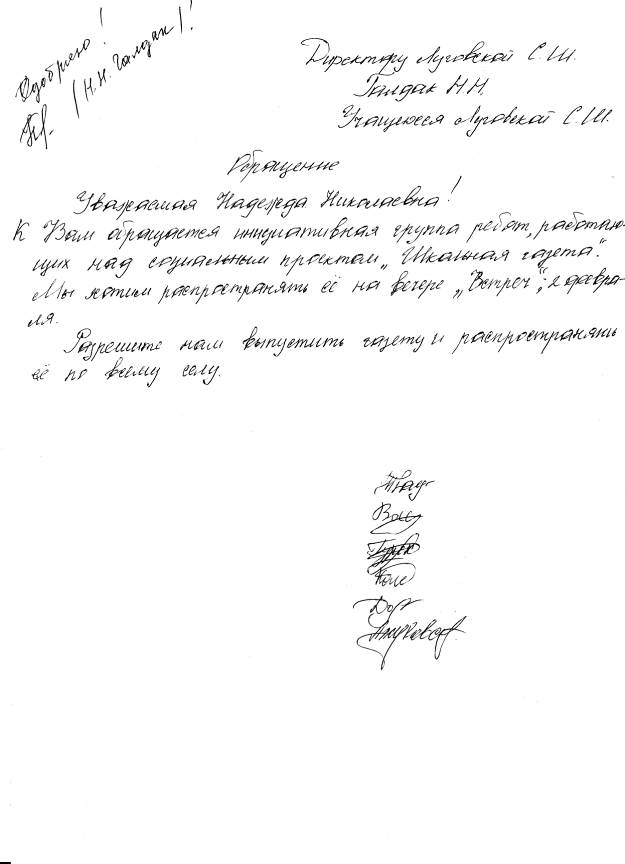 Одобряю!
/Н.Н. Галдак/!
Директору Луговской С.Ш.
Галдак Н.Н.
Учащиеся Луговской С.Ш.
Обращение
Уважаемая Надежда Николаевна!
К Вам обращается инициативная группа ребят, работаю-
щих над социальным проектом „Школьная газета".
Мы хотим распространять её на вечере „Встреч", 2 февра-
ля.
Разрешите нам выпустить газету и распространять
её по всему селу.